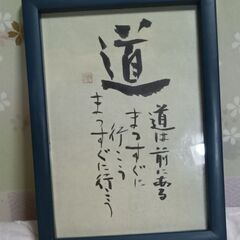 道
道は前にある
まっすぐに
行こう
まっすぐに行こう